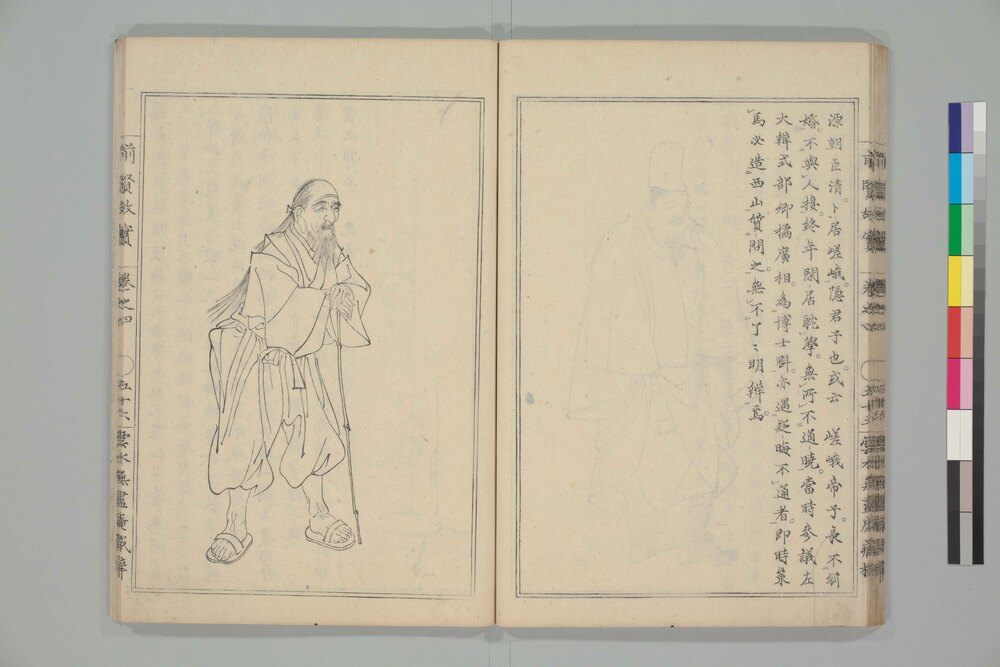 源朝臣清。卜居嵯峨。隠君子也。或云 嵯峨帝子。長不
婚。不與人接。終年閑居耽學。無所不通曉。當時參議左
大辨式部卿橘廣相。為博士時。亦遇疑晦不通者。即時策
馬必造西山質問之。無不了〻明辨焉。
前賢故實
卷之四
五十六
雲水無盡庵藏梓
前賢故實